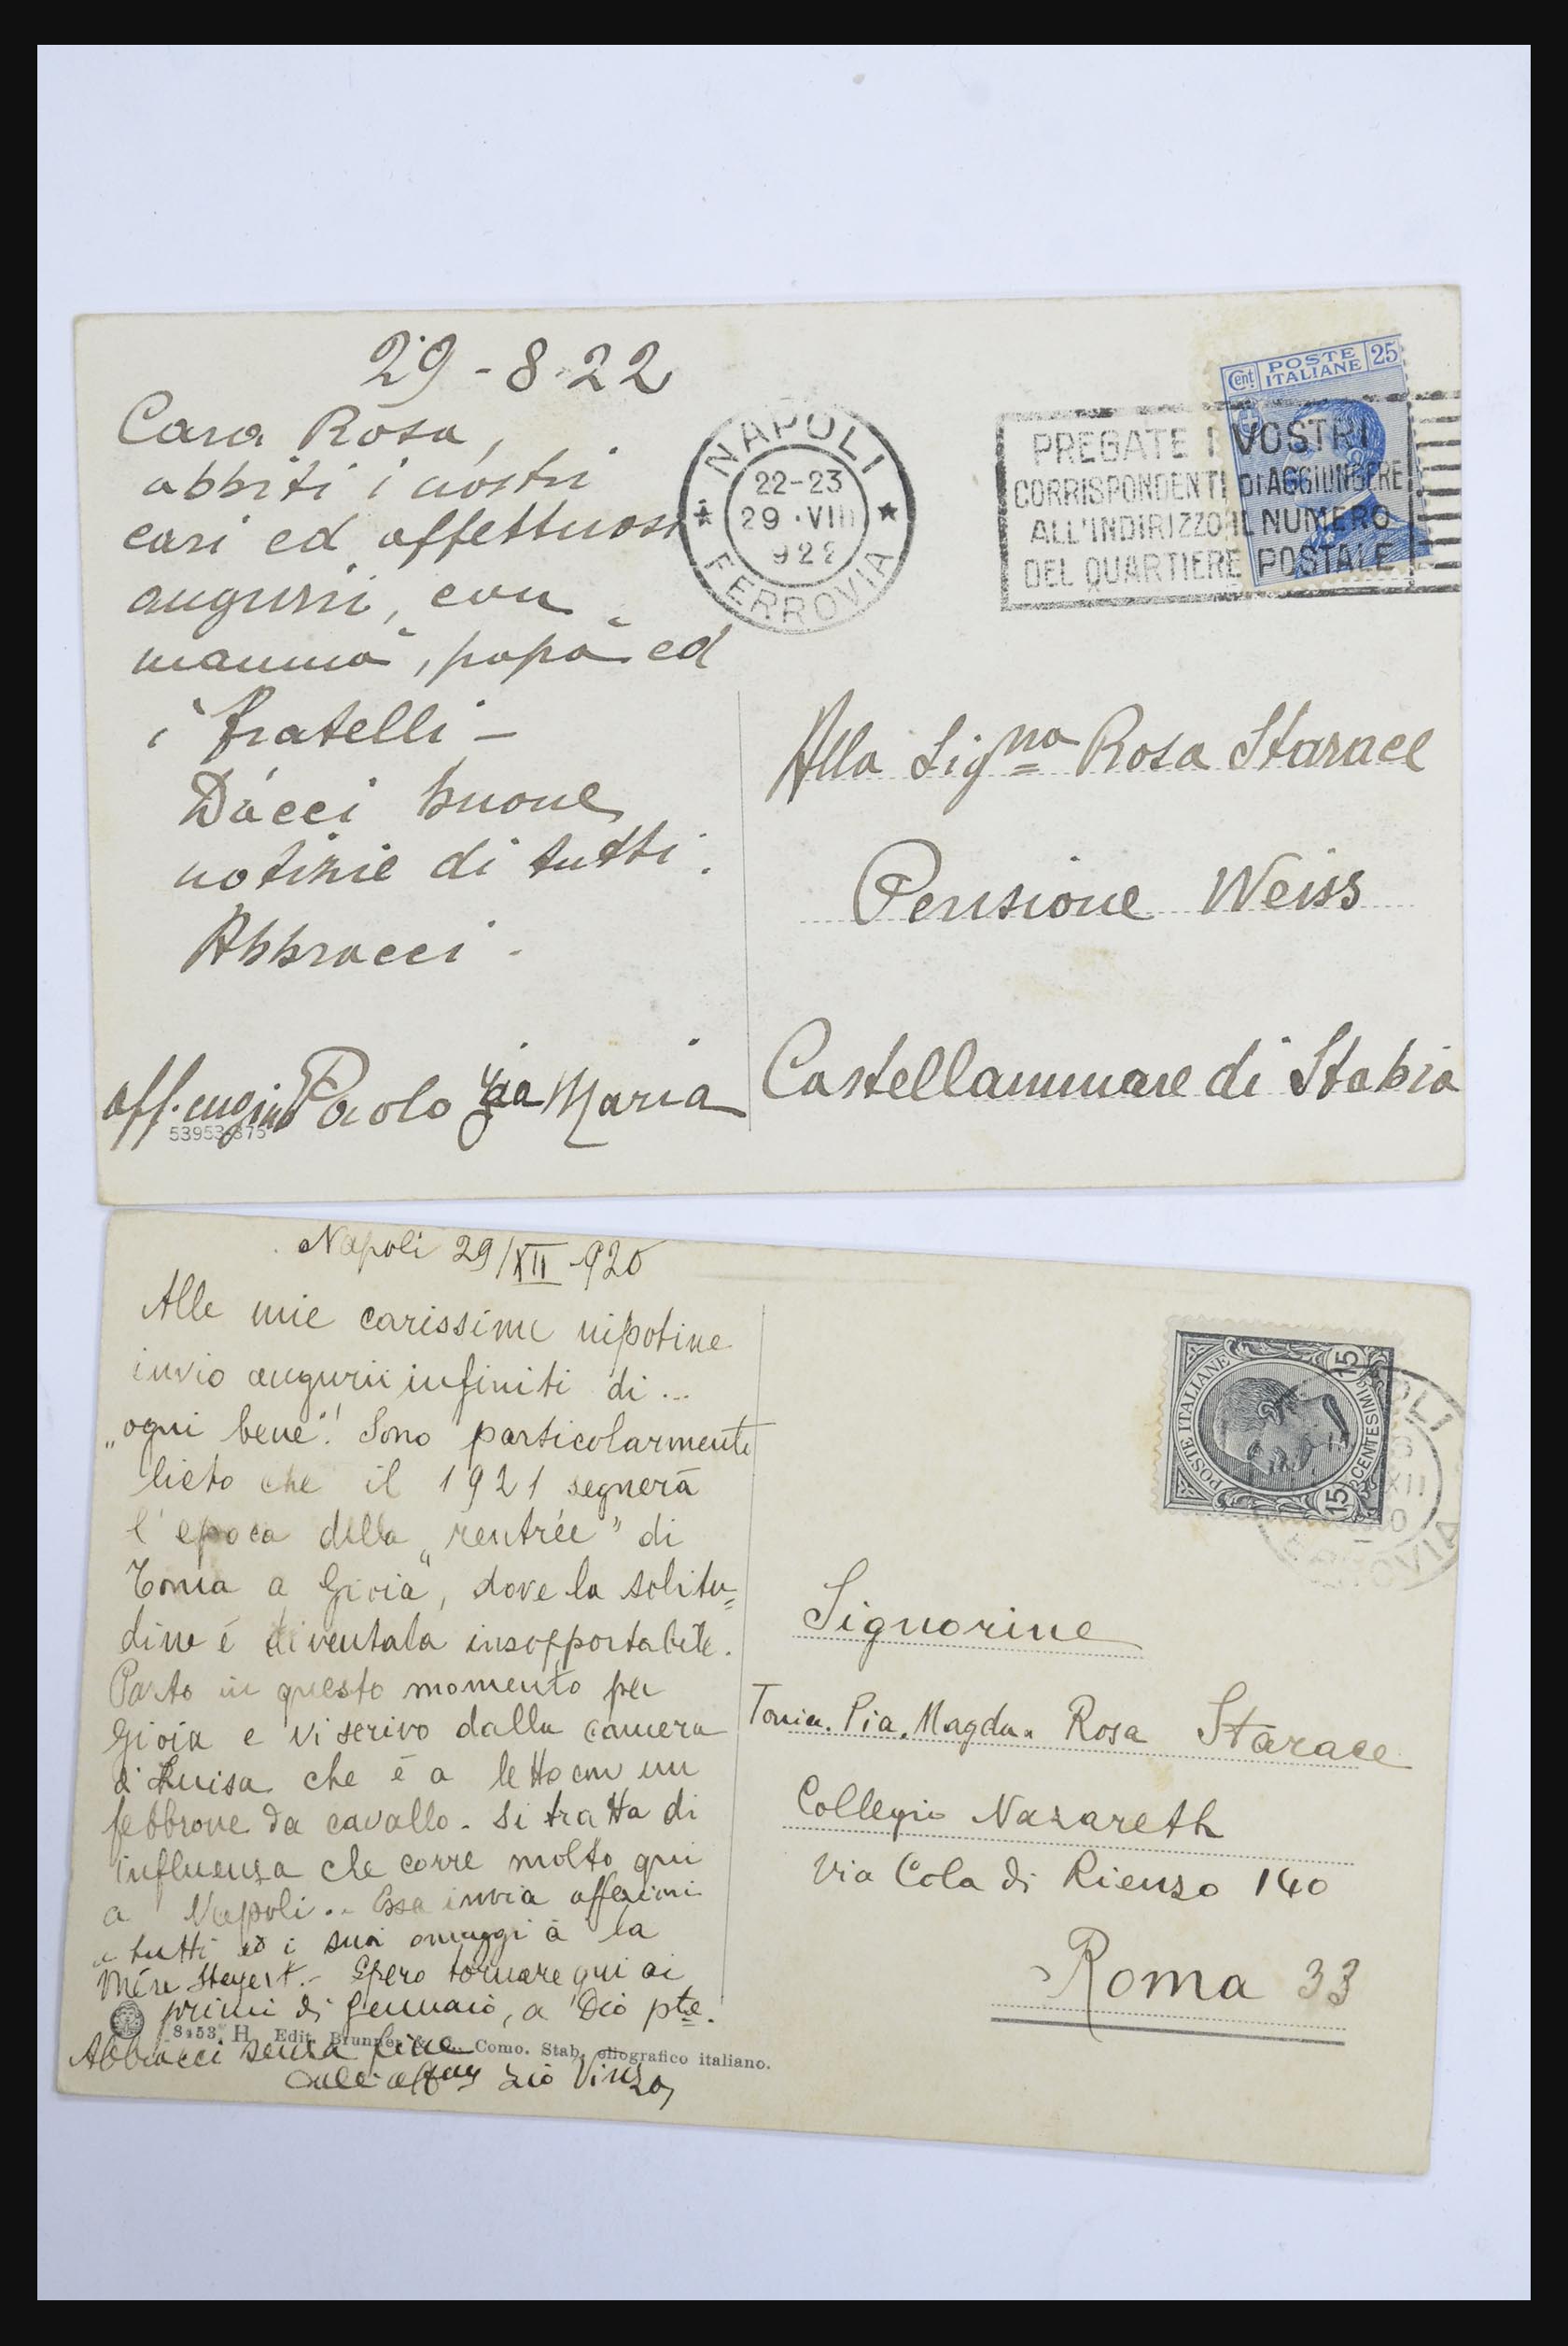 29-8-22
Cara Rosa,
abbiti i nostri
cari ed affettuosi
augurii, con
mammà, papà ed
i fratelli –
Dacci buone
notizie di tutti.
Abbracci.
aff. cugino Paolo Zia Maria
53953-375
NAPOLI
22-23
29·VIII
922
FERROVIA
PREGATE I VOSTRI
CORRISPONDENTI DI AGGIUNGERE
ALL'INDIRIZZO IL NUMERO
DEL QUARTIERE POSTALE
Cent POSTE ITALIANE 25
Alla Signa Rosa Starace
Pensione Weiss
Castellammare di Stabia
Napoli 29/XII-920
Alle mie carissime nipotine
invio augurii infiniti di...
„ogni bene"! Sono particolarmente
lieto che il 1921 segnerà
l'epoca della „rentrée" di
Tonia a Gioia, dove la solitu=
dine è diventata insopportabile.
Parto in questo momento per
Gioia e vi scrivo dalla camera
di Luisa che è a letto con un
febbrone da cavallo. Si tratta di
influenza che corre molto qui
a Napoli.. Essa invia affezioni
a tutti ed i suoi omaggi à la
Mère Steyert.- Spero tornare qui ai
primi di Gennaio, a Dio pte.
Abbracci senza fine
zio Vinzo,
8453 H Edit. Brunner & C., Como. Stab. eliografico italiano.
POSTE ITALIANE
15 CENTESIMI 15
OLI
XII
FERROVIA
Signorine
Tonia. Pia. Magda. Rosa Starace
Collegio Nazareth
Via Cola di Rienzo 140
Roma 33